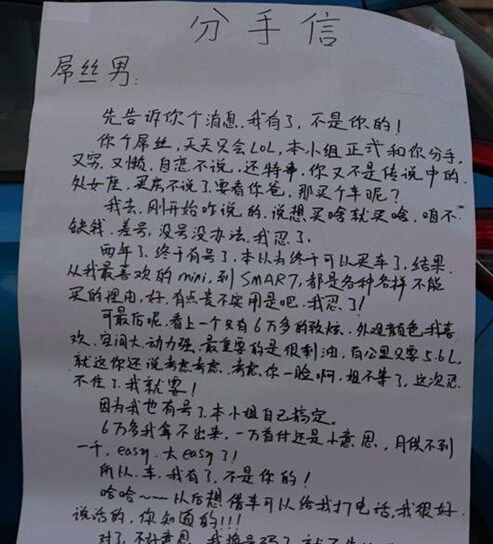 分手信
屌丝男:
先告诉你个消息,我有了,不是你的!
你个屌丝,天天只会LOL,本小姐正式和你分手,
又穷,又懒,自恋不说,还特事,你又不是传说中的
处女座,买房不说了要看你爸,那买个车呢?
我去,刚开始咋说的,说想买啥就买啥,咱不
缺钱,差号,没号没办法,我忍了,
两年了,终于有号了,本以为终于可以买车了,结果,
从我最喜欢的mini,到SMART,都是各种各样不能
买的理由,好,有点贵不实用是吧,我忍了!
可最后呢,看上一个只有6万多的致炫,外观颜色我喜
欢,空间大,动力强,最重要的是很省油,百公里只要5.6L,
就这你还说考虑考虑,考虑你一脸啊,姐不等了,这次忍
不住了,我就要!
因为我也有号了,本小姐自己搞定。
6万多我拿不出来,一万首付还是小意思,月供不到
一千,easy,太easy了!
所以,车,我有了,不是你的!
哈哈~~~以后想借车可以给我打电话,我很好
说话的,你知道的!!!
对了,不好意思,我换号码了